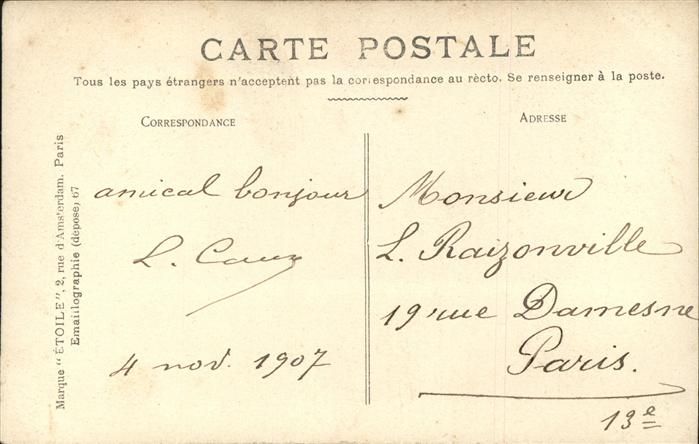 CARTE POSTALE
Tous les pays étrangers n'acceptent pas la correspondance au rècto. Se renseigner à la poste.
CORRESPONDANCE
amical bonjour
L. Caux
4 nov. 1907
ADRESSE
Monsieur
L. Raizonville
19 rue Damesne
Paris.
13e
Marque "ÉTOILE", 2, rue d'Amsterdam. Paris
Emaillographie (déposé) 67